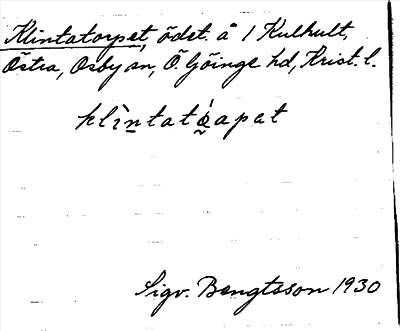 Klintatorpet, ödet. å 1 Kulhult,
Östra, Osby sn, Ö. Göinge hd, Krist. l.
klìntatå̀apat
Sigv. Bengtsson 1930